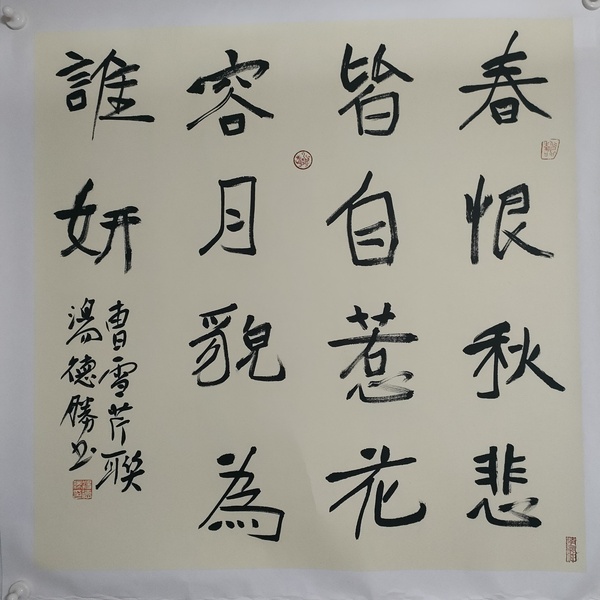 春恨秋悲
皆自惹花
容月貌為
誰妍
曹雪芹聯
湯德勝书